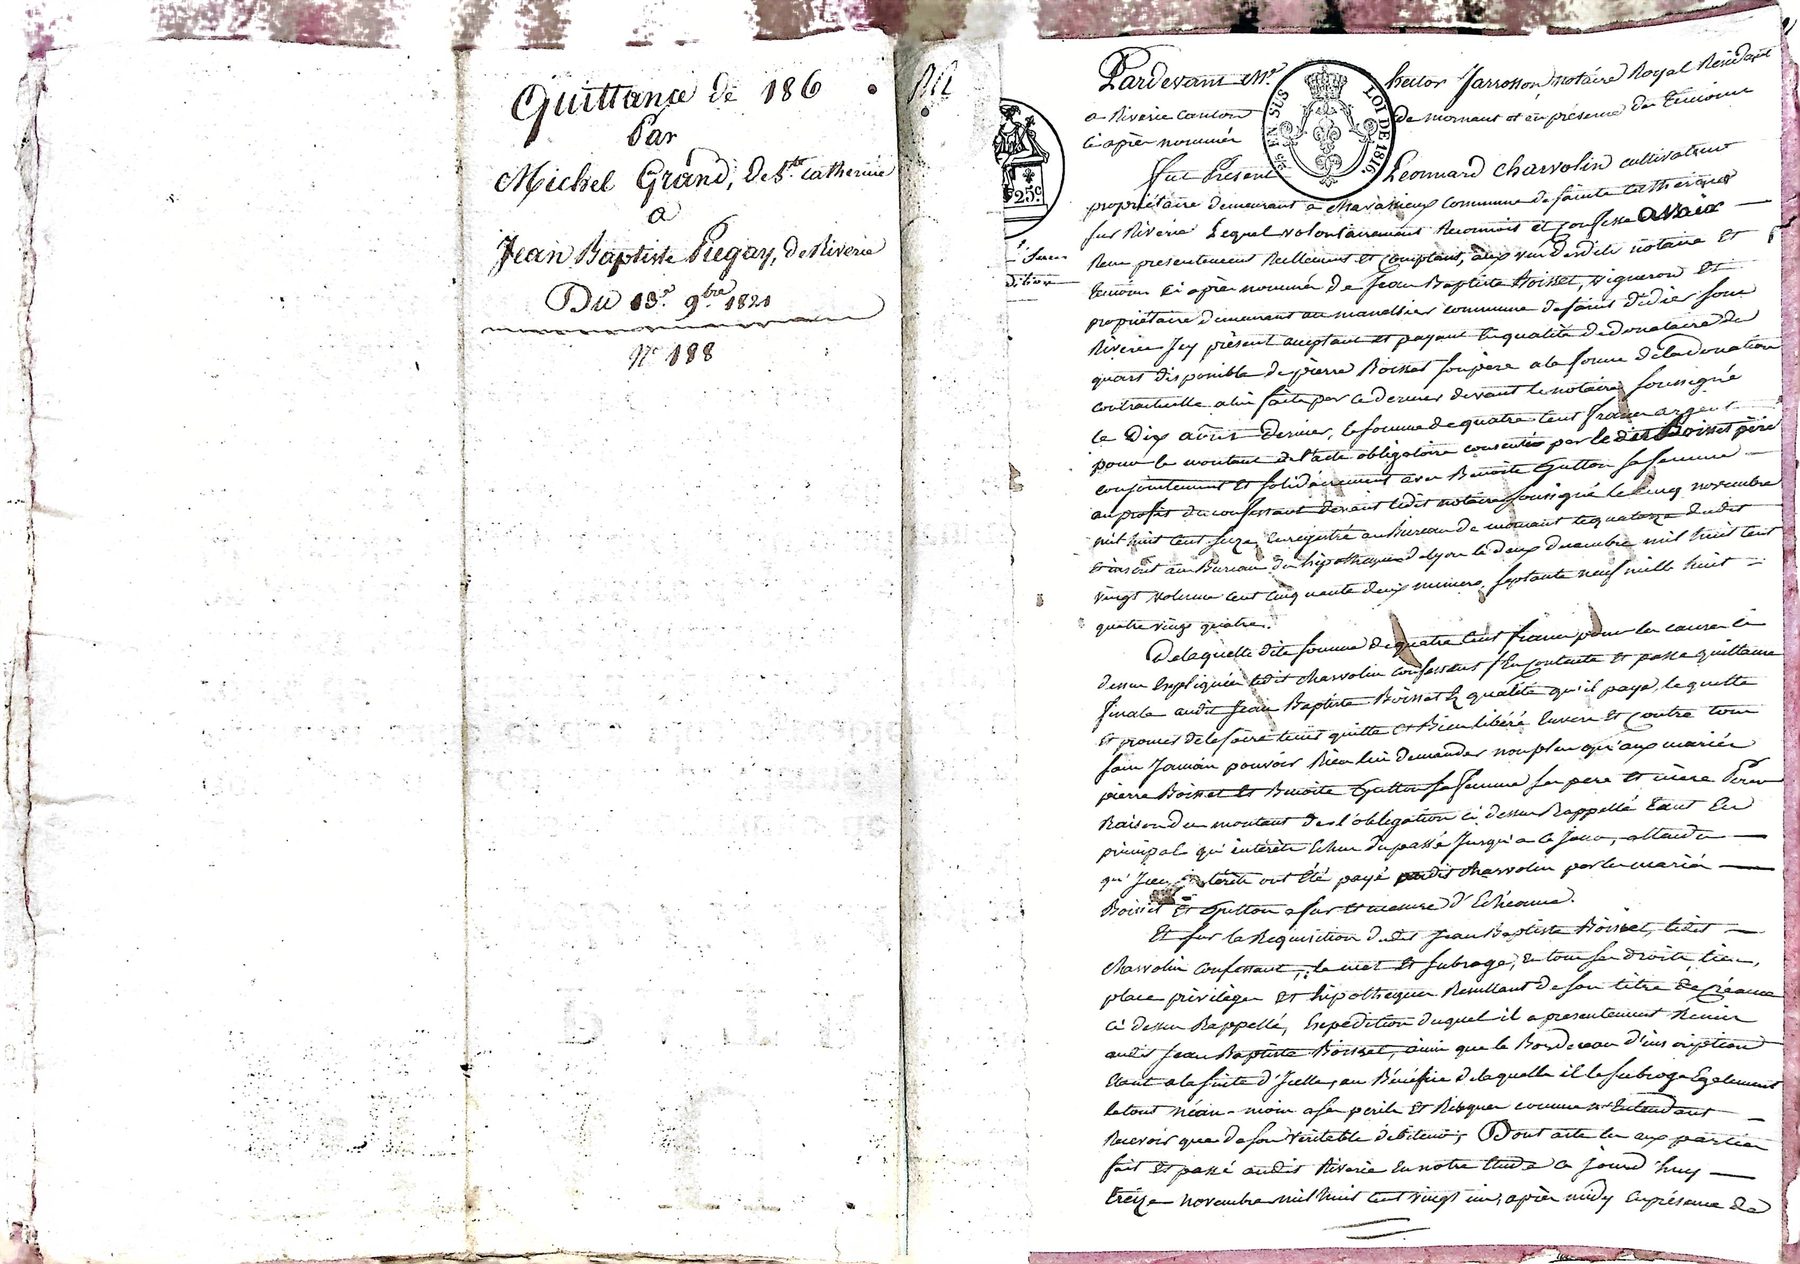 Quittance de 186
Par
Michel Grand, de Ste Catherine
a
Jean Baptiste Piegay, de Riverie
Du 13e 9bre 1821
No 188
25c
25 EN SUS LOI DE 1816
Pardevant Me hector Jarrosson notaire Royal Résidant
a Riverie canton de mornant et en présence des temoins
ci après nommés
fut Présent Léonnard Charvolin cultivateur
propriétaire demeurant a Chavannieux commune de sainte Catherine
sur Riverie Lequel volontairement Reconnoit et confesse avoir
Reçu presentement Reellement et comptant, aux vue desdits notaire et
temoins ci après nommés de Jean Baptiste Boisset, vigneron et
propriétaire demeurant au commune de saint didier sous
Riverie Icy présent acceptant et payant en qualité de donataire du
quart disponible de pierre Boisset son père a la forme de la donation
contractuelle a lui faite par ce dernier devant le notaire soussigné
le Dix avril dernier, la somme de quatre cent francs argent
pour le montant de l'acte obligatoire consentie par ledit Boisset père
conjointement et solidairement avec Benoite Gutton sa femme
au profit du confessant devant ledit notaire soussigné le cinq novembre
mil huit cent seize Enregistré au Bureau de mornant le quatorze dudit
et inscrit au Bureau des hipotheques de Lyon le deux decembre mil huit cent
vingt volume cent cinquante deux numero septante neuf mille huit
quatre vingt quatre.
De laquelle dite somme de quatre cent francs pour les causes ci
dessus Expliquées ledit Charvolin confessant s'En contente et passe quittance
finale audit Jean Baptiste Boisset En qualité qu'il paye, le quitte
et promet de le faire tenir quitte et Bien libéré Envers et contre tous
sans Jamais pouvoir Rien lui demander non plus qu'aux mariés
pierre Boisset et Benoite Gutton sa femme ses pere et mère Pour
Raison du montant de l'obligation ci dessus Rappellé tant En
principal qu'intérêts Echus du passé Jusqu'a ce Jour, attendu
qu'Iceux intérêts ont été payé audit Charvolin par les mariés
Boisset et Gutton a fur et mesure d'Echéance.
Et sur la Réquisition dudit Jean Baptiste Boisset, ledit
Charvolin confessant, le met et subroge, En tous ses droits, lieu,
place privilèges et hipotheques Resultant de son titre de Créance
ci dessus Rappellé, Expedition duquel il a presentement Remis
audit Jean Baptiste Boisset, ainsi que le Bordereau d'inscription
Etant a la suite d'Icelle, au Bénéfice de laquelle il le subroge Egalement
le tout néan-moins a ses perils et Risques comme n'Entendant
Recevoir que de son véritable débiteur; Dont acte lu aux parties
fait et passé audit Riverie En notre Etude ce jourd'huy
treize novembre mil huit cent vingt un, après midy En présence de